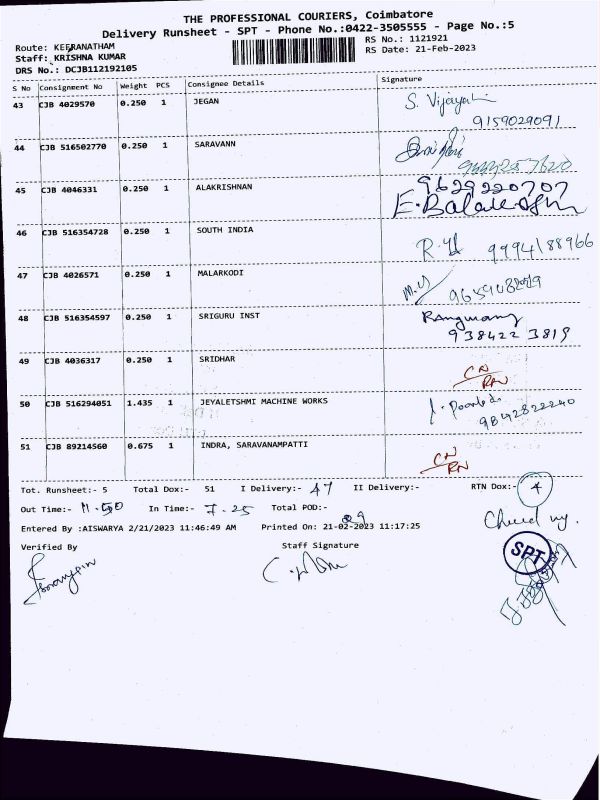 THE PROFESSIONAL COURIERS, Coimbatore
Delivery Runsheet - SPT - Phone No.:0422-3505555 - Page No.:5
Route: KEERANATHAM
RS No.: 1121921
Staff: KRISHNA KUMAR
RS Date: 21-Feb-2023
DRS No.: DCJB112192105
S No Consignment No Weight PCS Consignee Details Signature
43 CJB 4029570 0.250 1 JEGAN S. Vijaya
9159029091
44 CJB 516502770 0.250 1 SARAVANN
45 CJB 4046331 0.250 1 ALAKRISHNAN 9629220707
46 CJB 516354728 0.250 1 SOUTH INDIA 9994188966
47 CJB 4026571 0.250 1 MALARKODI
48 CJB 516354597 0.250 1 SRIGURU INST
938422 3819
49 CJB 4036317 0.250 1 SRIDHAR CN/RN
50 CJB 516294051 1.435 1 JEYALETSHMI MACHINE WORKS
9842822240
51 CJB 89214560 0.675 1 INDRA, SARAVANAMPATTI CN/RN
Tot. Runsheet:- 5 Total Dox:- 51 I Delivery:- 47 II Delivery:- RTN Dox:- 4
Out Time:- 11.50 In Time:- 7.25 Total POD:-
Entered By :AISWARYA 2/21/2023 11:46:49 AM Printed On: 21-02-2023 11:17:25
Verified By Staff Signature
SPT